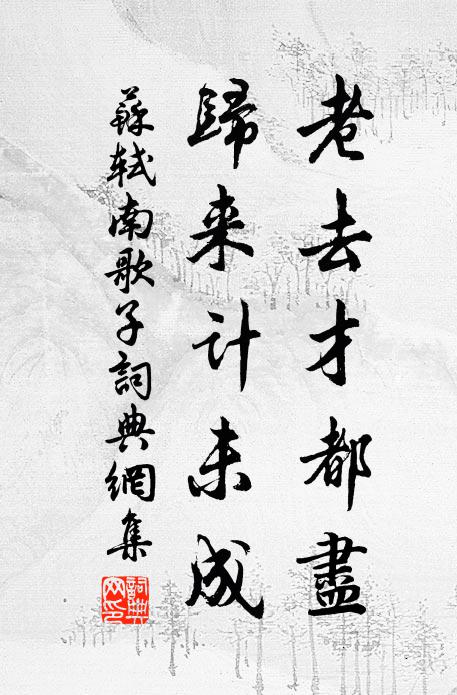 老去才都盡
歸来计未成
蘇軾南歌子詞典網集
詞典
网印